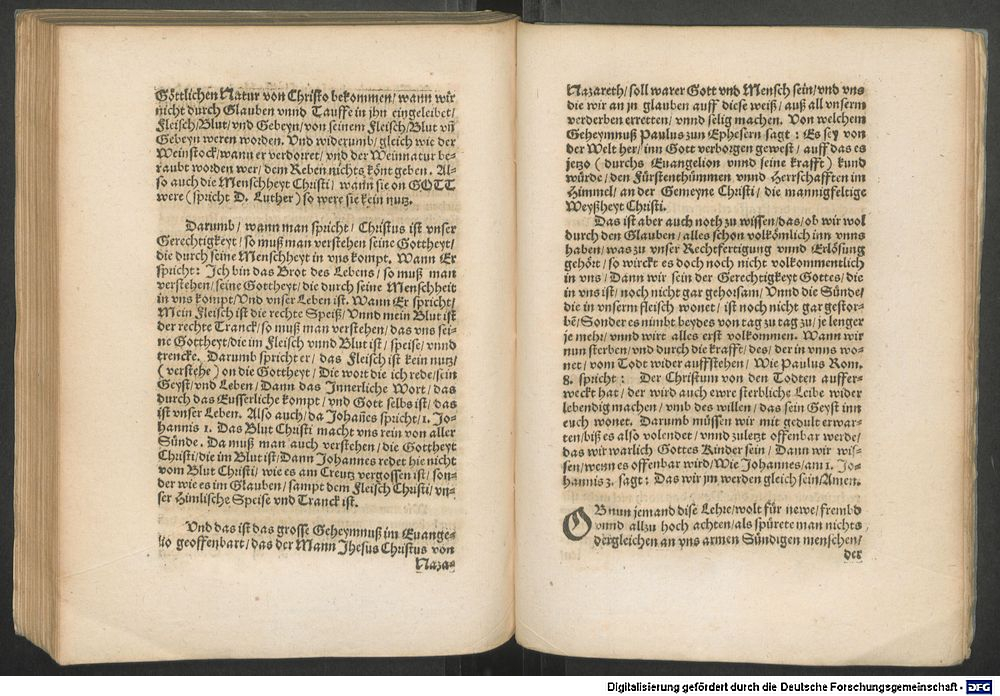 Göttlichen Natur von Christo bekommen/ wann wir
nicht durch Glauben vnnd Tauffe in jhn eingeleibet/
Fleisch/Blut/vnd Gebeyn/von seinem Fleisch/Blut vñ
Gebeyn weren worden. Vnd widerumb/ gleich wie der
Weinstock/wann er verdorret/ vnd der Weinnatur be-
raubt worden wer/ dem Reben nichts könt geben. Al-
so auch die Menschheyt Christi/ wann sie on GOTT
were (spricht D. Luther) so were sie kein nutz.
Darumb/ wann man spricht/ Christus ist vnser
Gerechtigkeyt/ so muß man verstehen seine Gottheyt/
die durch seine Menschheyt in vns kompt. Wann Er
spricht: Ich bin das Brot des Lebens/ so muß man
verstehen/seine Gottheyt/ die durch seine Menschheit
in vns kompt/Vnd vnser Leben ist. Wann Er spricht/
Mein Fleisch ist die rechte Speiß/ Vnnd mein Blut ist
der rechte Tranck/so muß man verstehen/das vns sei-
ne Gottheyt/die im Fleisch vnnd Blut ist/ speise/ vnnd
trencke. Darumb spricht er/ das Fleisch ist kein nutz/
(verstehe) on die Gottheyt/ Die wort die ich rede/sein
Geyst/vnd Leben/ Dann das Innerliche Wort/ das
durch das Eusserliche kompt/ vnd Gott selbs ist/ das
ist vnser Leben. Also auch/ da Johañes spricht/1. Jo-
hannis 1. Das Blut Christi macht vns rein von aller
Sünde. Da muß man auch verstehen/ die Gottheyt
Christi/die im Blut ist/Dann Johannes redet hie nicht
vom Blut Christi/ wie es am Creutz vergossen ist/ son-
der wie es im Glauben/ sampt dem Fleisch Christi/ vn-
ser Himlische Speise vnd Tranck ist.
Vnd das ist das grosse Geheymnuß im Euange-
lio geoffenbart/ das der Mann Jhesus Christus von
Naza-
Nazareth/ soll warer Gott vnd Mensch sein/vnd vns
die wir an jn glauben auff diese weiß/ auß all vnserm
verderben erretten/ vnnd selig machen. Von welchem
Geheymnuß Paulus zun Ephesern sagt: Es sey von
der Welt her/ inn Gott verborgen gewest/ auff das es
jetzo (durchs Euangelion vnnd seine krafft) kund
würde/ den Fürstenthümmen vnnd Herrschafften im
Himmel/ an der Gemeyne Christi/ die mannigfeltige
Weyßheyt Christi.
Das ist aber auch noth zu wissen/das/ ob wir wol
durch den Glauben/ alles schon volkömlich inn vnns
haben/ was zu vnser Rechtfertigung vnnd Erlösung
gehört/ so wirckt es doch noch nicht volkommentlich
in vns/ Dann wir sein der Gerechtigkeyt Gottes/ die
in vns ist/ noch nicht gar gehorsam/ Vnnd die Sünde/
die in vnserm fleisch wonet/ ist noch nicht gar gestor-
bē/ Sonder es nimbt beydes von tag zu tag zu/ je lenger
je mehr/ vnnd wirt alles erst volkommen. Wann wir
nun sterben/ vnd durch die krafft/ des/ der in vnns wo-
net/ vom Todt wider aufffstehen/ Wie Paulus Rom.
8. spricht: Der Christum von den Todten auffer-
weckt hat/ der wird auch ewre sterbliche Leibe wider
lebendig machen/ vmb des willen/ das sein Geyst inn
euch wonet. Darumb müssen wir mit gedult erwar-
ten/biß es also volendet/ vnnd zuletzt offenbar werde/
das wir warlich Gottes Kinder sein/ Dann wir wis-
sen/wenn es offenbar wird/Wie Johannes/am 1. Jo-
hannis 3. sagt: Das wir jm werden gleich sein/Amen.
OB nun jemand dise Lehre/wolt für newe/frembd
vnnd allzu hoch achten/als spürete man nichts
dergleichen an vns armen Sündigen menschen/
der
Digitalisierung gefördert durch die Deutsche Forschungsgemeinschaft - DFG